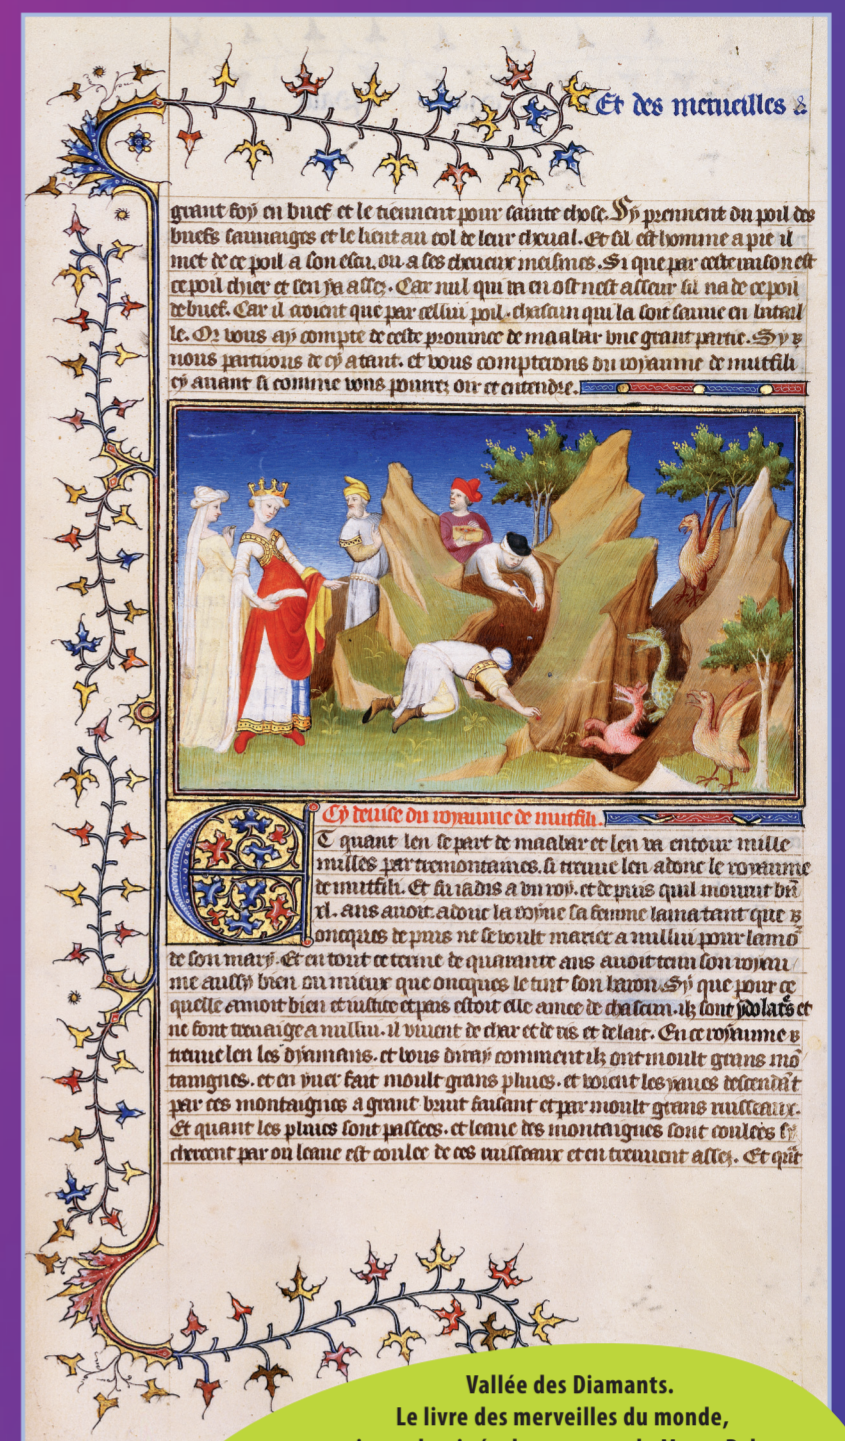 Et des merueilles &
grant foy en buef et le tiennent pour sainte chose. Sy prennent du poil des
buefs sauuaiges et le lient au col de leur cheual. Et sil est homme a pie il
met de ce poil a son escu. ou a ses cheueux meismes. Si que par ceste raison est
ce poil chier et sen ya assez. Car nul qui va en ost nest asseur sil na de ce poil
de buef. Car il croient que par cellui poil. chascun qui la soit sauue en batail
le. Or vous ay compte de ceste prouince de maabar une grant partie. Sy
nous partirons de cy atant. et vous compterons du royaume de mutfili
cy auant si comme vous pourrez oir et entendre.
Cy deuise du royaume de mutfili.
Et quant len se part de maabar et len va entour mille
milles par tremontaines. si treuue len adonc le royaume
de mutfili. Et fu iadis a un roy. et depuis quil mourut bien
xl. ans auoit. adonc la royne sa femme lama tant que
oncques de puis ne se voult marier a nullui pour lamo
de son mary. Et en tout ce terme de quarante ans auoit tenu son royau
me aussy bien ou mieux que oncques le tint son baron. Sy que pour ce
quelle amoit bien et iustice et pais estoit elle amee de chascun. ilz sont ydolatres et
ne font treuaige a nullui. il viuent de char et de ris et de lait. En ce royaume
treuue len les dyamans. et vous diray comment ilz ont moult grans mo
taignes. et en yuer fait moult grans pluies. et voient les yaues descendant
par ces montaignes a grant bruit faisant et par moult grans ruisseaux.
Et quant les pluies sont passees. et leaue des montaignes sont coulees sy
cherceent par ou leaue est coulee de ces ruisseaux et en treuuent assez. Et quant
Vallée des Diamants.
Le livre des merveilles du monde,